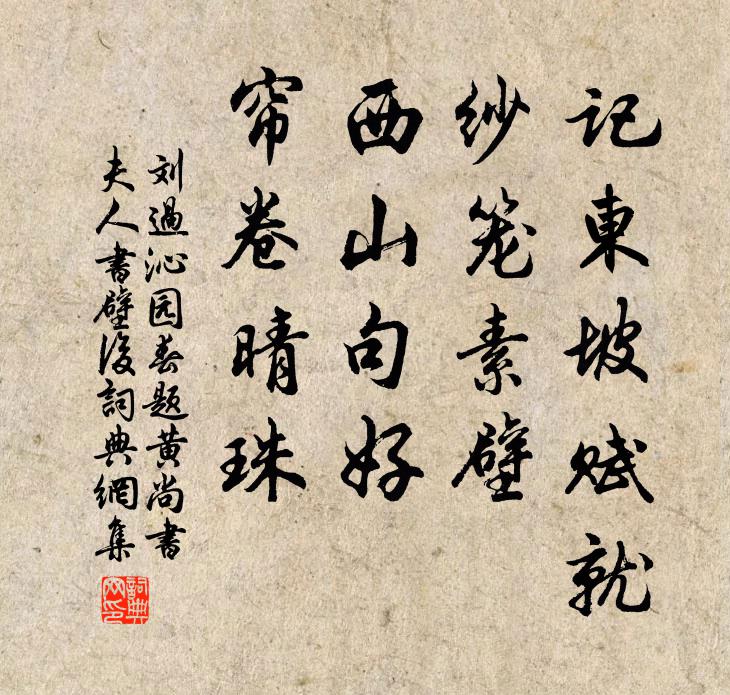 記東坡赋就
纱笼素壁
西山句好
帘卷晴珠
刘過沁园春題黄尚書
夫人書壁後詞典網集
詞典
网印